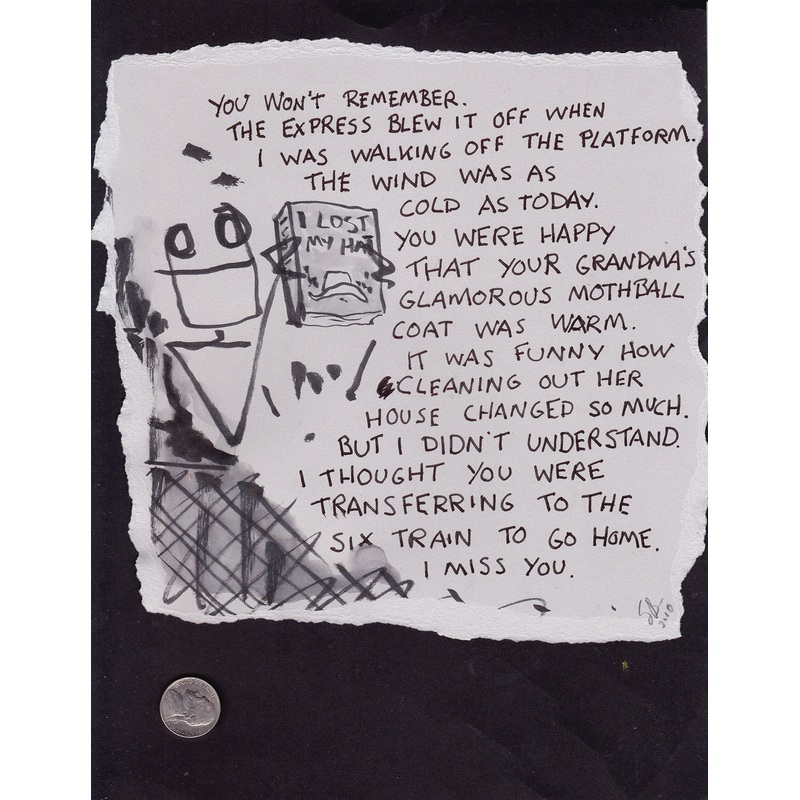 YOU WON'T REMEMBER.
THE EXPRESS BLEW IT OFF WHEN
I WAS WALKING OFF THE PLATFORM.
THE WIND WAS AS
COLD AS TODAY.
I LOST
MY HAT
YOU WERE HAPPY
THAT YOUR GRANDMA'S
GLAMOROUS MOTHBALL
COAT WAS WARM.
IT WAS FUNNY HOW
CLEANING OUT HER
HOUSE CHANGED SO MUCH.
BUT I DIDN'T UNDERSTAND.
I THOUGHT YOU WERE
TRANSFERRING TO THE
SIX TRAIN TO GO HOME.
I MISS YOU.
2010